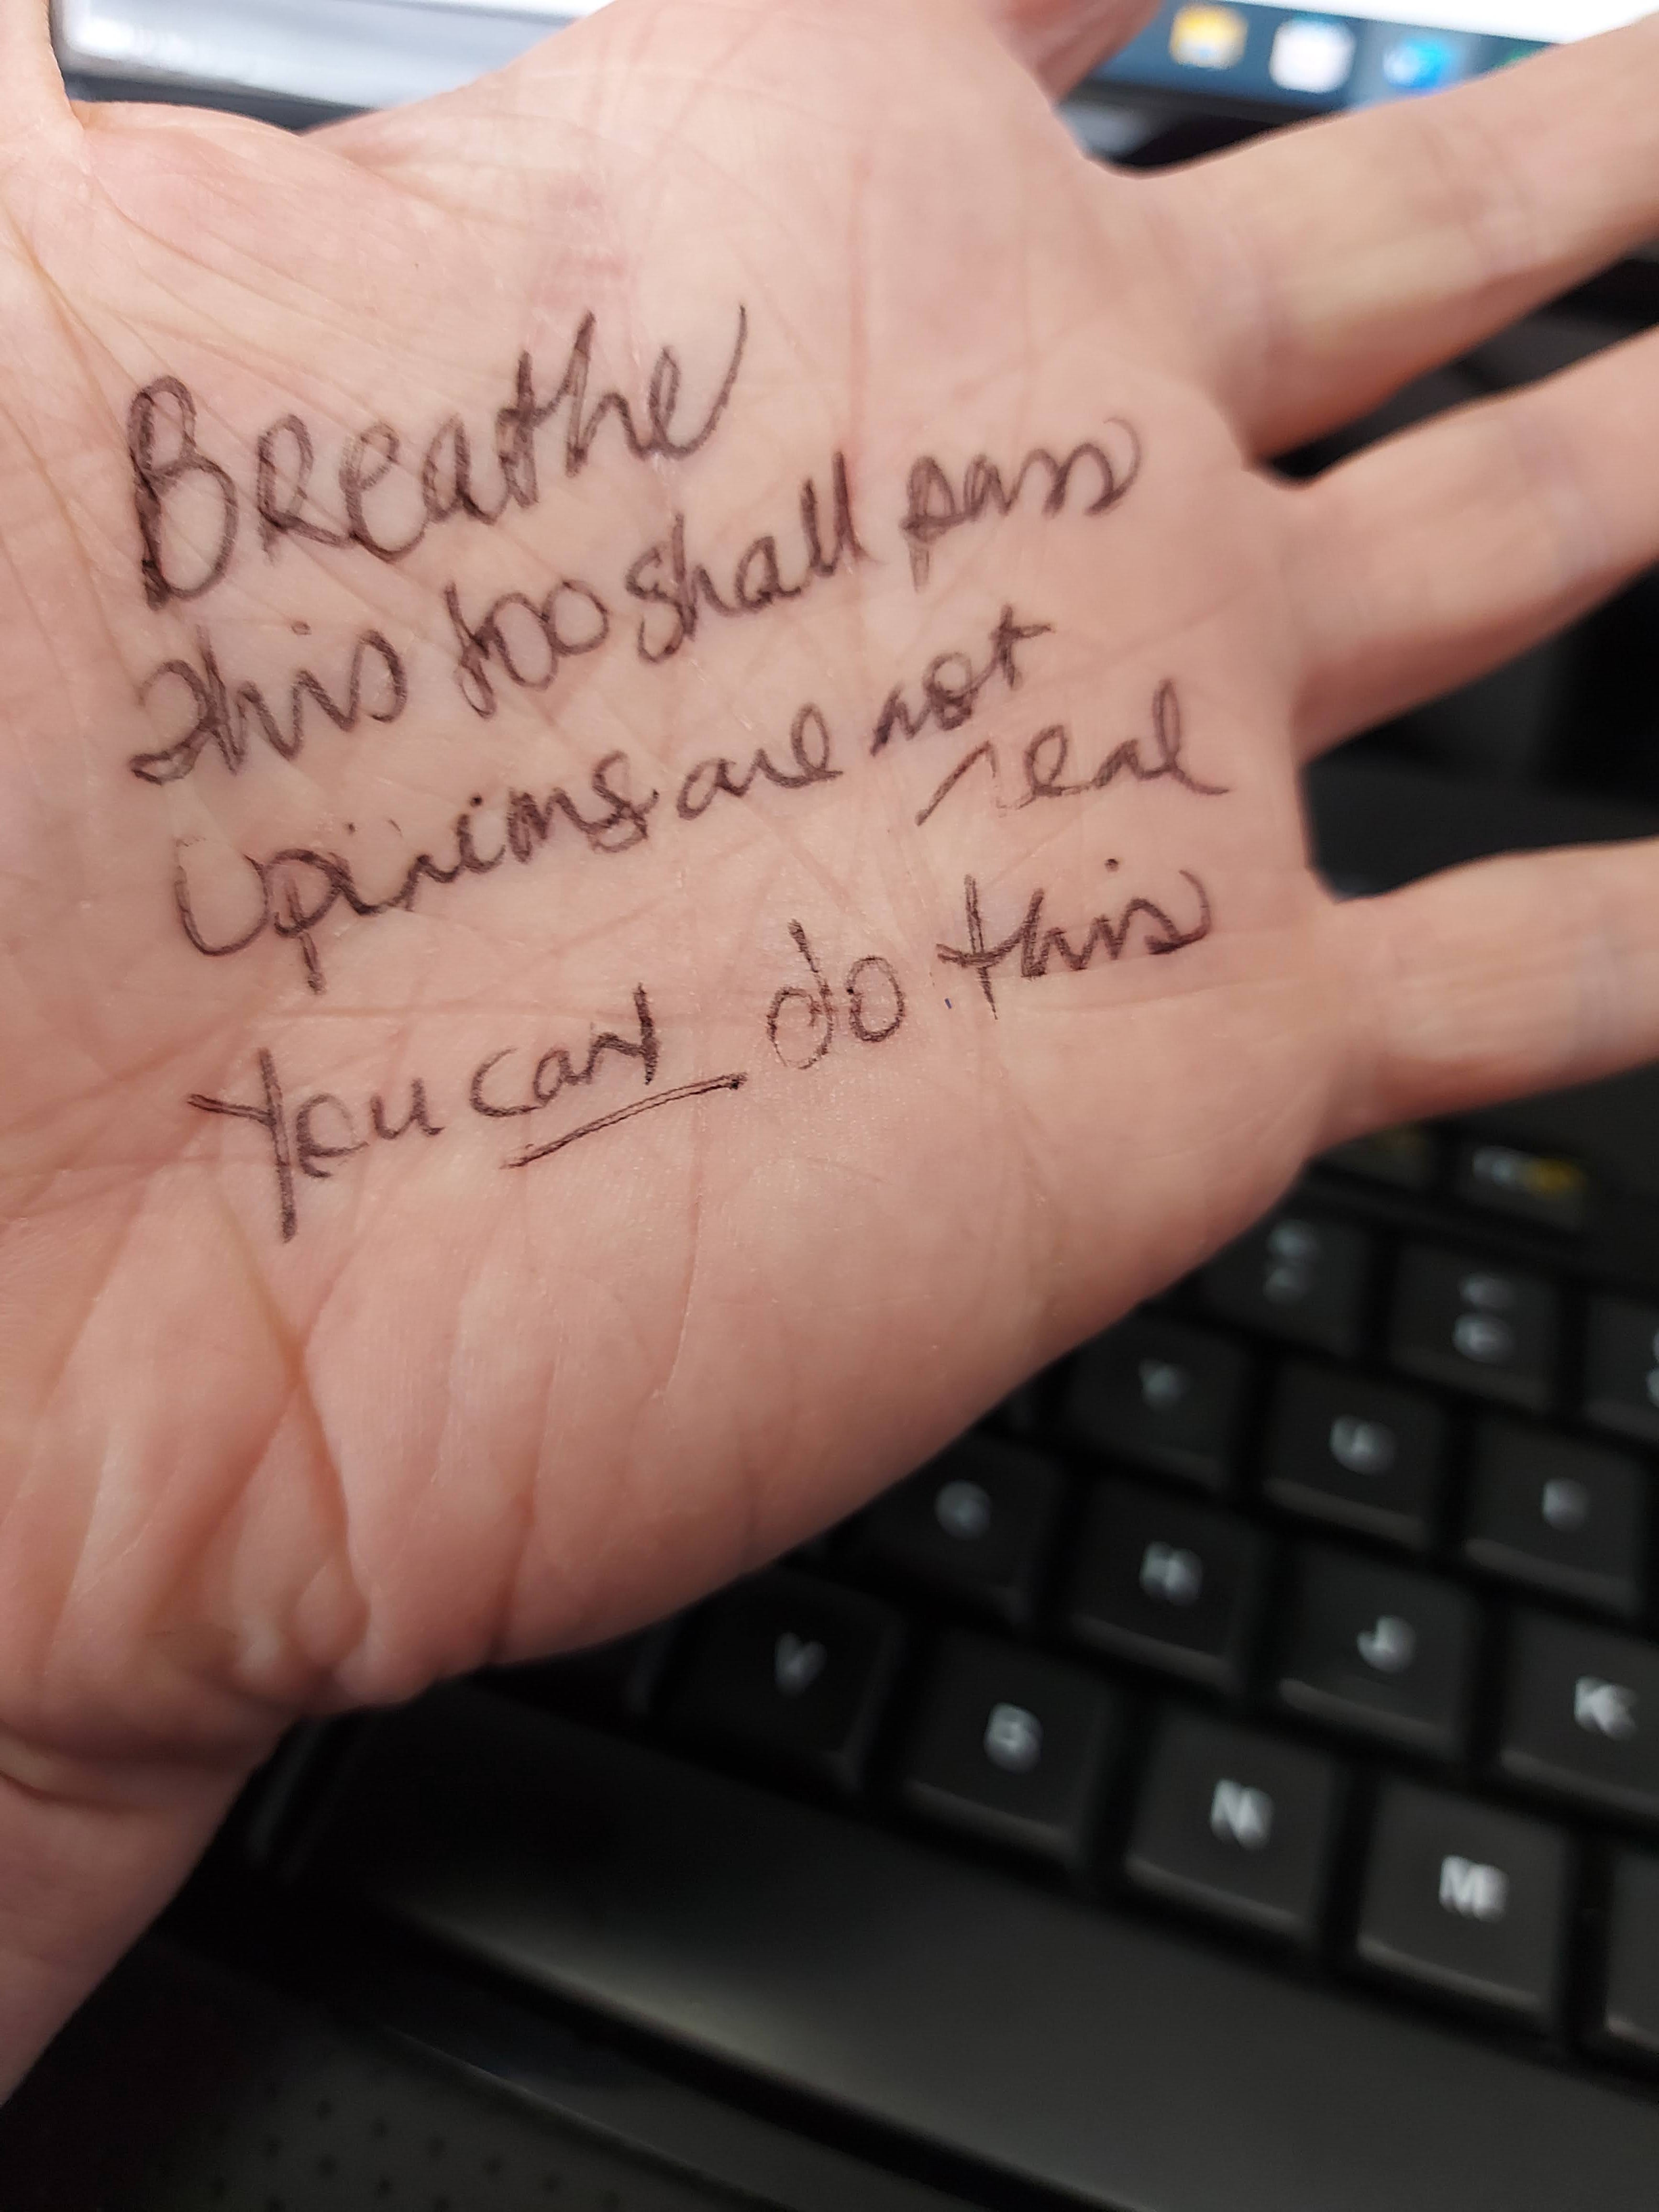 Breathe
this too shall pass
Opinions are not
real
You can do this
Y U
G H J K
V B N M